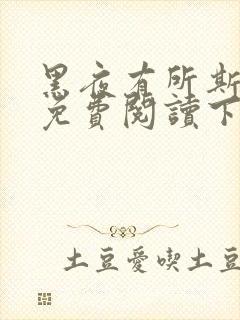 黑夜有所斯
免費閱讀下
土豆愛喫土豆